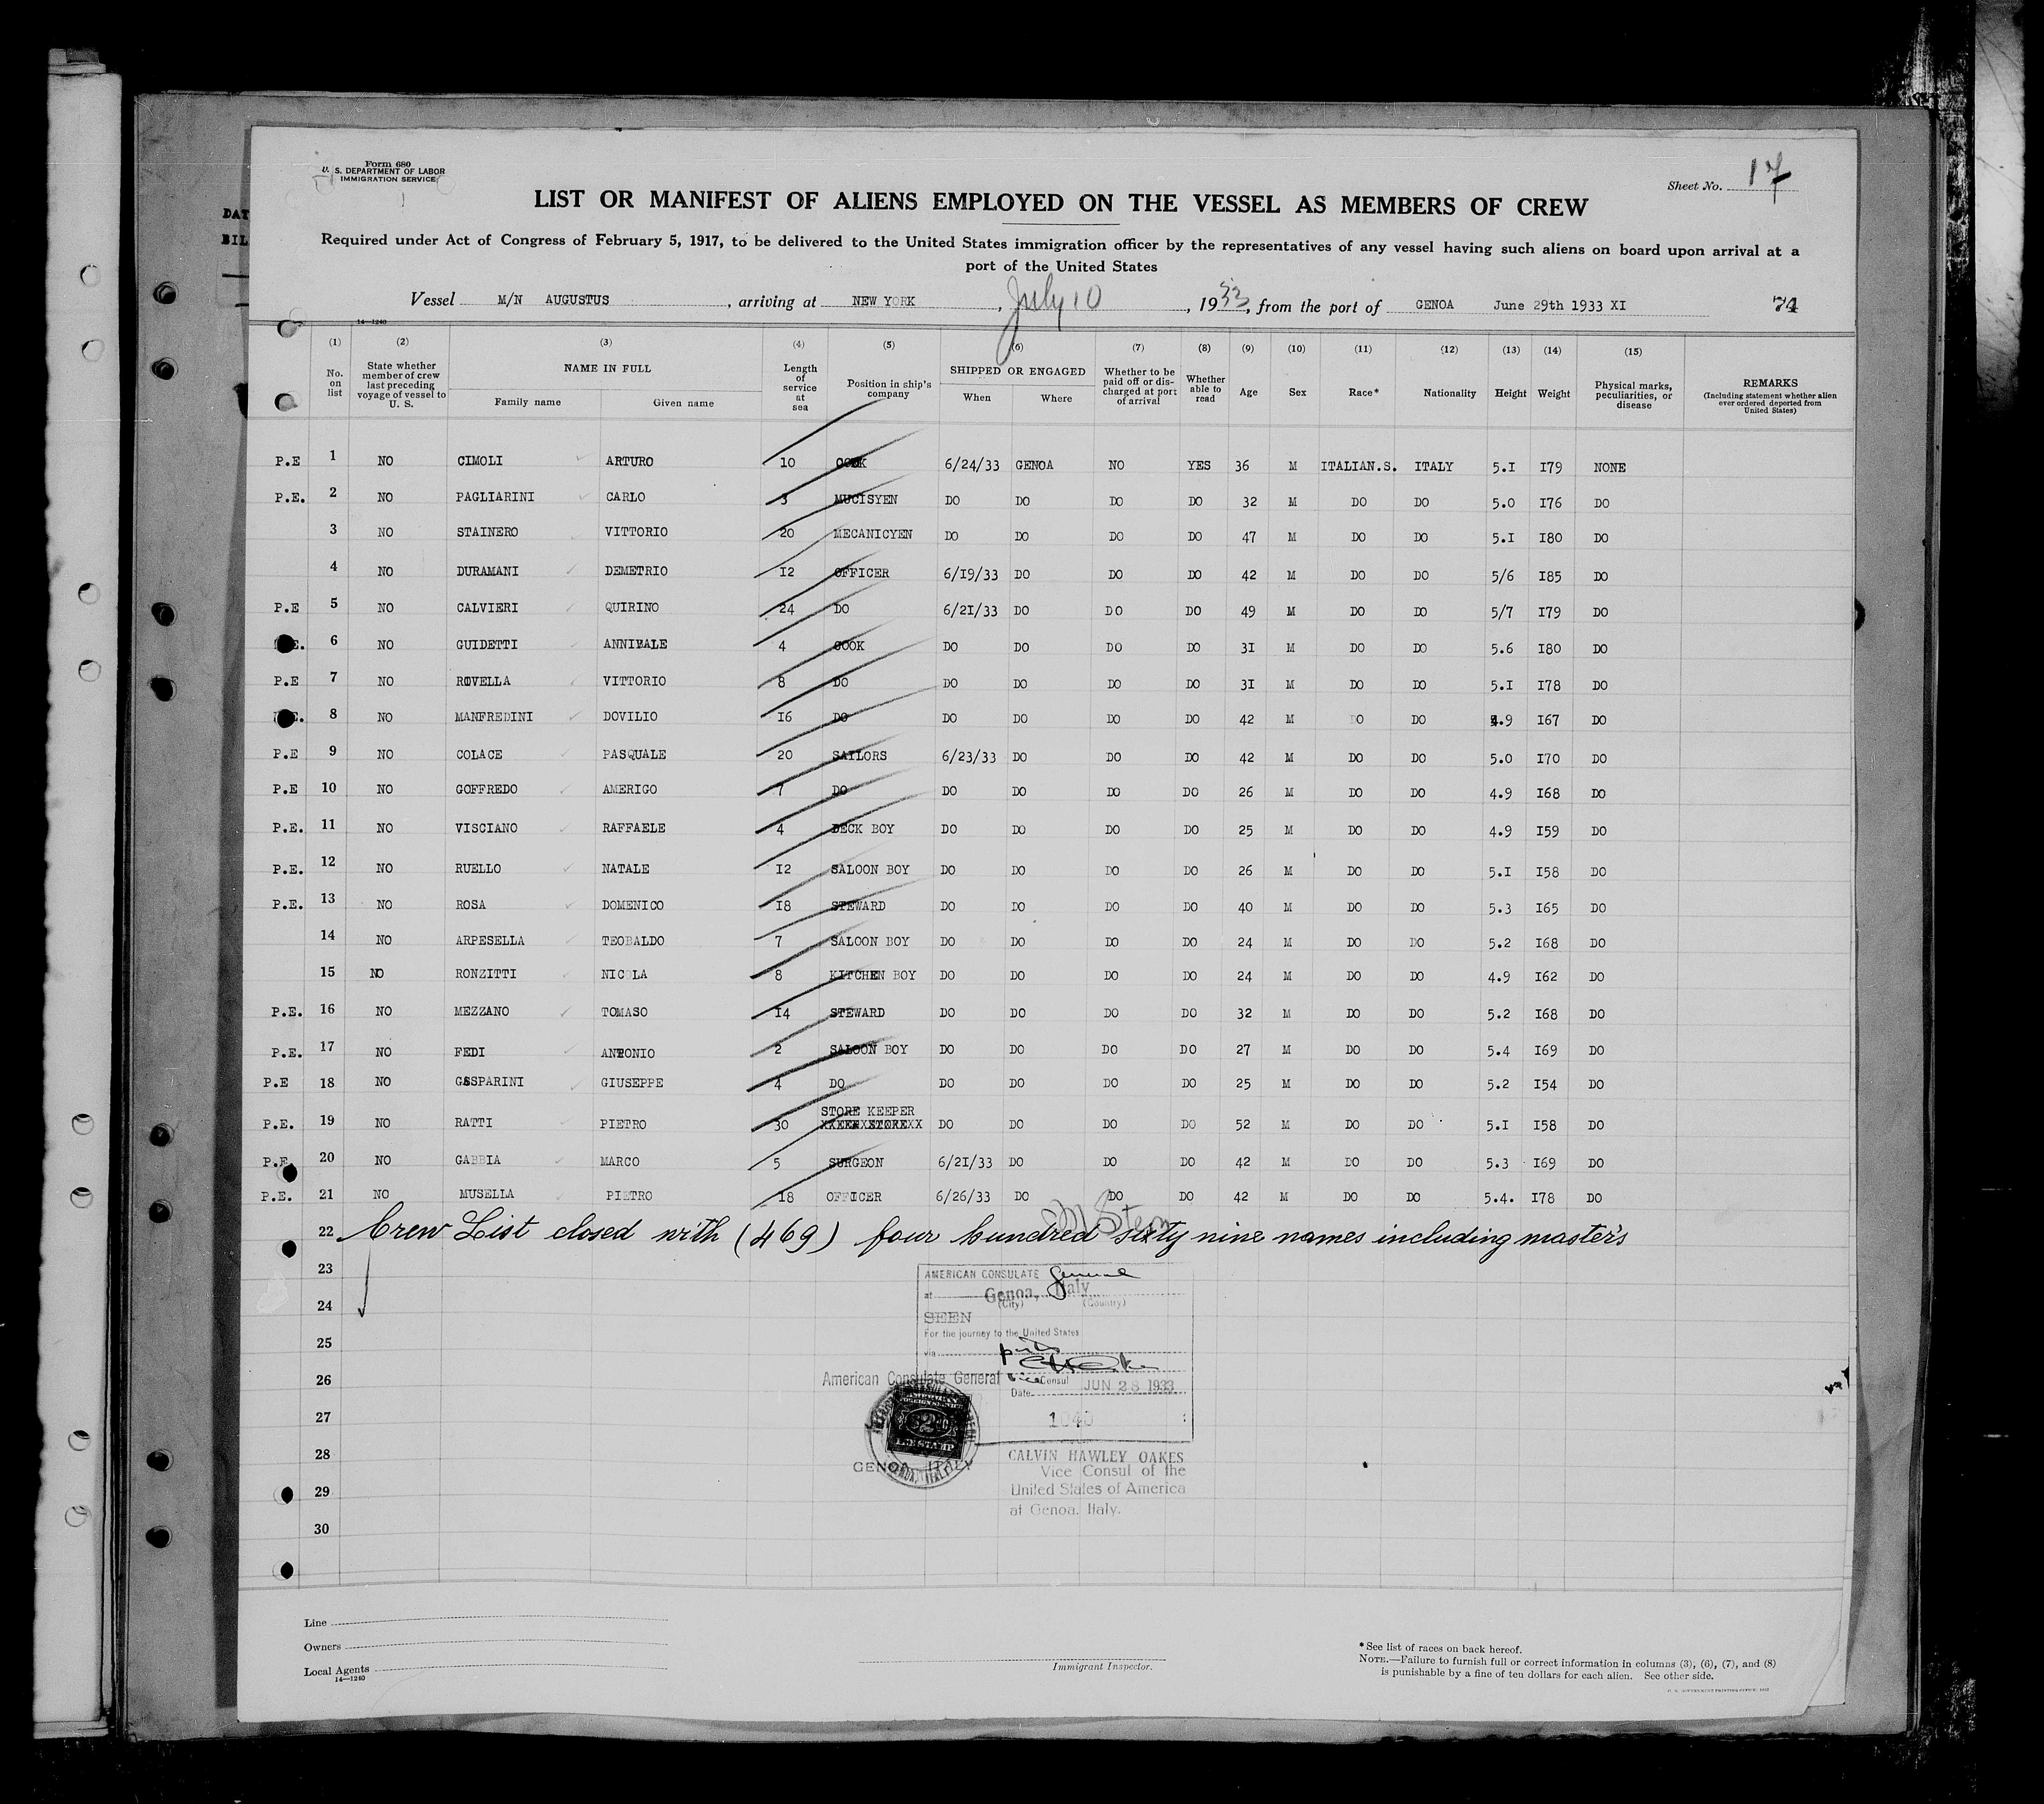 Form 680
U. S. DEPARTMENT OF LABOR
IMMIGRATION SERVICE
Sheet No. 17
LIST OR MANIFEST OF ALIENS EMPLOYED ON THE VESSEL AS MEMBERS OF CREW
Required under Act of Congress of February 5, 1917, to be delivered to the United States immigration officer by the representatives of any vessel having such aliens on board upon arrival at a
port of the United States
DAT
BIL
Vessel M/N AUGUSTUS, arriving at NEW YORK, July 10, 1933, from the port of GENOA June 29th 1933 XI 74
14—1240
(1) (2) (3) (4) (5) (6) (7) (8) (9) (10) (11) (12) (13) (14) (15)
No. on list State whether member of crew last preceding voyage of vessel to U. S. NAME IN FULL Family name Given name Length of service at sea Position in ship's company SHIPPED OR ENGAGED When Where Whether to be paid off or discharged at port of arrival Whether able to read Age Sex Race* Nationality Height Weight Physical marks, peculiarities, or disease REMARKS (Including statement whether alien ever ordered deported from United States)
P.E 1 NO CIMOLI ARTURO 10 COOK 6/24/33 GENOA NO YES 36 M ITALIAN.S. ITALY 5.I I79 NONE
P.E. 2 NO PAGLIARINI CARLO 3 MUCISYEN DO DO DO DO 32 M DO DO 5.0 I76 DO
3 NO STAINERO VITTORIO 20 MECANICYEN DO DO DO DO 47 M DO DO 5.I I80 DO
4 NO DURAMANI DEMETRIO I2 OFFICER 6/I9/33 DO DO DO 42 M DO DO 5/6 I85 DO
P.E 5 NO CALVIERI QUIRINO 24 DO 6/2I/33 DO DO DO 49 M DO DO 5/7 I79 DO
E. 6 NO GUIDETTI ANNIBALE 4 COOK DO DO DO DO 3I M DO DO 5.6 I80 DO
P.E 7 NO ROVELLA VITTORIO 8 DO DO DO DO DO 3I M DO DO 5.I I78 DO
E. 8 NO MANFREDINI DOVILIO I6 DO DO DO DO DO 42 M DO DO 4.9 I67 DO
P.E 9 NO COLACE PASQUALE 20 SAILORS 6/23/33 DO DO DO 42 M DO DO 5.0 I70 DO
P.E 10 NO GOFFREDO AMERIGO 7 DO DO DO DO DO 26 M DO DO 4.9 I68 DO
P.E. 11 NO VISCIANO RAFFAELE 4 DECK BOY DO DO DO DO 25 M DO DO 4.9 I59 DO
P.E. 12 NO RUELLO NATALE I2 SALOON BOY DO DO DO DO 26 M DO DO 5.I I58 DO
P.E. 13 NO ROSA DOMENICO I8 STEWARD DO DO DO DO 40 M DO DO 5.3 I65 DO
14 NO ARPESELLA TEOBALDO 7 SALOON BOY DO DO DO DO 24 M DO DO 5.2 I68 DO
15 NO RONZITTI NICOLA 8 KITCHEN BOY DO DO DO DO 24 M DO DO 4.9 I62 DO
P.E. 16 NO MEZZANO TOMASO I4 STEWARD DO DO DO DO 32 M DO DO 5.2 I68 DO
P.E. 17 NO FEDI ANTONIO 2 SALOON BOY DO DO DO DO 27 M DO DO 5.4 I69 DO
P.E 18 NO GASPARINI GIUSEPPE 4 DO DO DO DO DO 25 M DO DO 5.2 I54 DO
P.E. 19 NO RATTI PIETRO 30 STORE KEEPER DO DO DO DO 52 M DO DO 5.I I58 DO
P.E. 20 NO GABBIA MARCO 5 SURGEON 6/2I/33 DO DO DO 42 M DO DO 5.3 I69 DO
P.E. 21 NO MUSELLA PIETRO I8 OFFICER 6/26/33 DO DO DO 42 M DO DO 5.4. I78 DO
M Stern
22 Crew List closed with (469) four hundred sixty nine names including master's
23
24
25
26
27
28
29
30
AMERICAN CONSULATE General
at Genoa, Italy
(City) (Country)
SEEN
For the journey to the United States
via
American Consulate General Vice Consul
Date JUN 28 1933
1040
AMERICAN
FOREIGN SERVICE
$2
FEE STAMP
GENOA, ITALY
CALVIN HAWLEY OAKES
Vice Consul of the
United States of America
at Genoa, Italy.
Line
Owners
Local Agents
14—1240
Immigrant Inspector.
* See list of races on back hereof.
NOTE.—Failure to furnish full or correct information in columns (3), (6), (7), and (8)
is punishable by a fine of ten dollars for each alien. See other side.